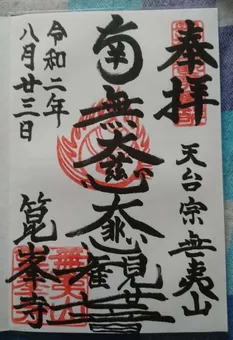 奉拝
天台宗無夷山
南無大慈大悲観世音
令和二年
八月廿三日
箟峯寺